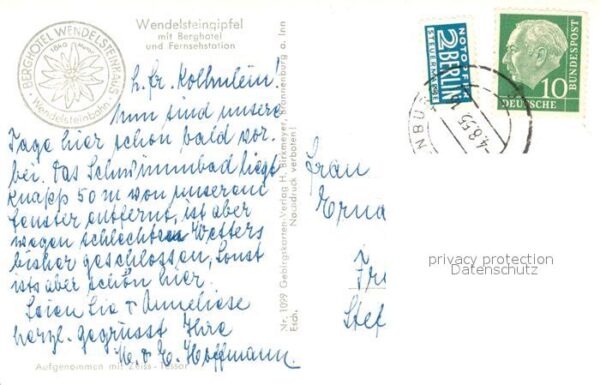 BERGHOTEL WENDELSTEINHAUS
Wendelsteinbahn
Wendelsteingipfel
mit Berghotel
und Fernsehstation
NOTOPFER
2 BERLIN
STEUERMARKE
10
DEUTSCHE
BUNDESPOST
-4.8.55
L. Fr. Kolbmlein!
Nun sind unsere
Tage hier schon bald vor-
bei. Das Schwimmbad liegt
knapp 50 m von unserem
Fenster entfernt, ist aber
wegen schlechten Wetters
bisher geschlossen, Sonst
ists aber schön hier.
Seien Sie u. Anneliese
herzl. gegrüsst Ihre
M. & E. Hoffmann.
Aufgenommen mit Zeiss-Tessar
Nr. 1099 Gebirgskarten-Verlag H. Birkmeyer, Brannenburg a. Inn
Esch. Nachdruck verboten!
Frau
Erna
Fr
Stef
privacy protection
Datenschutz